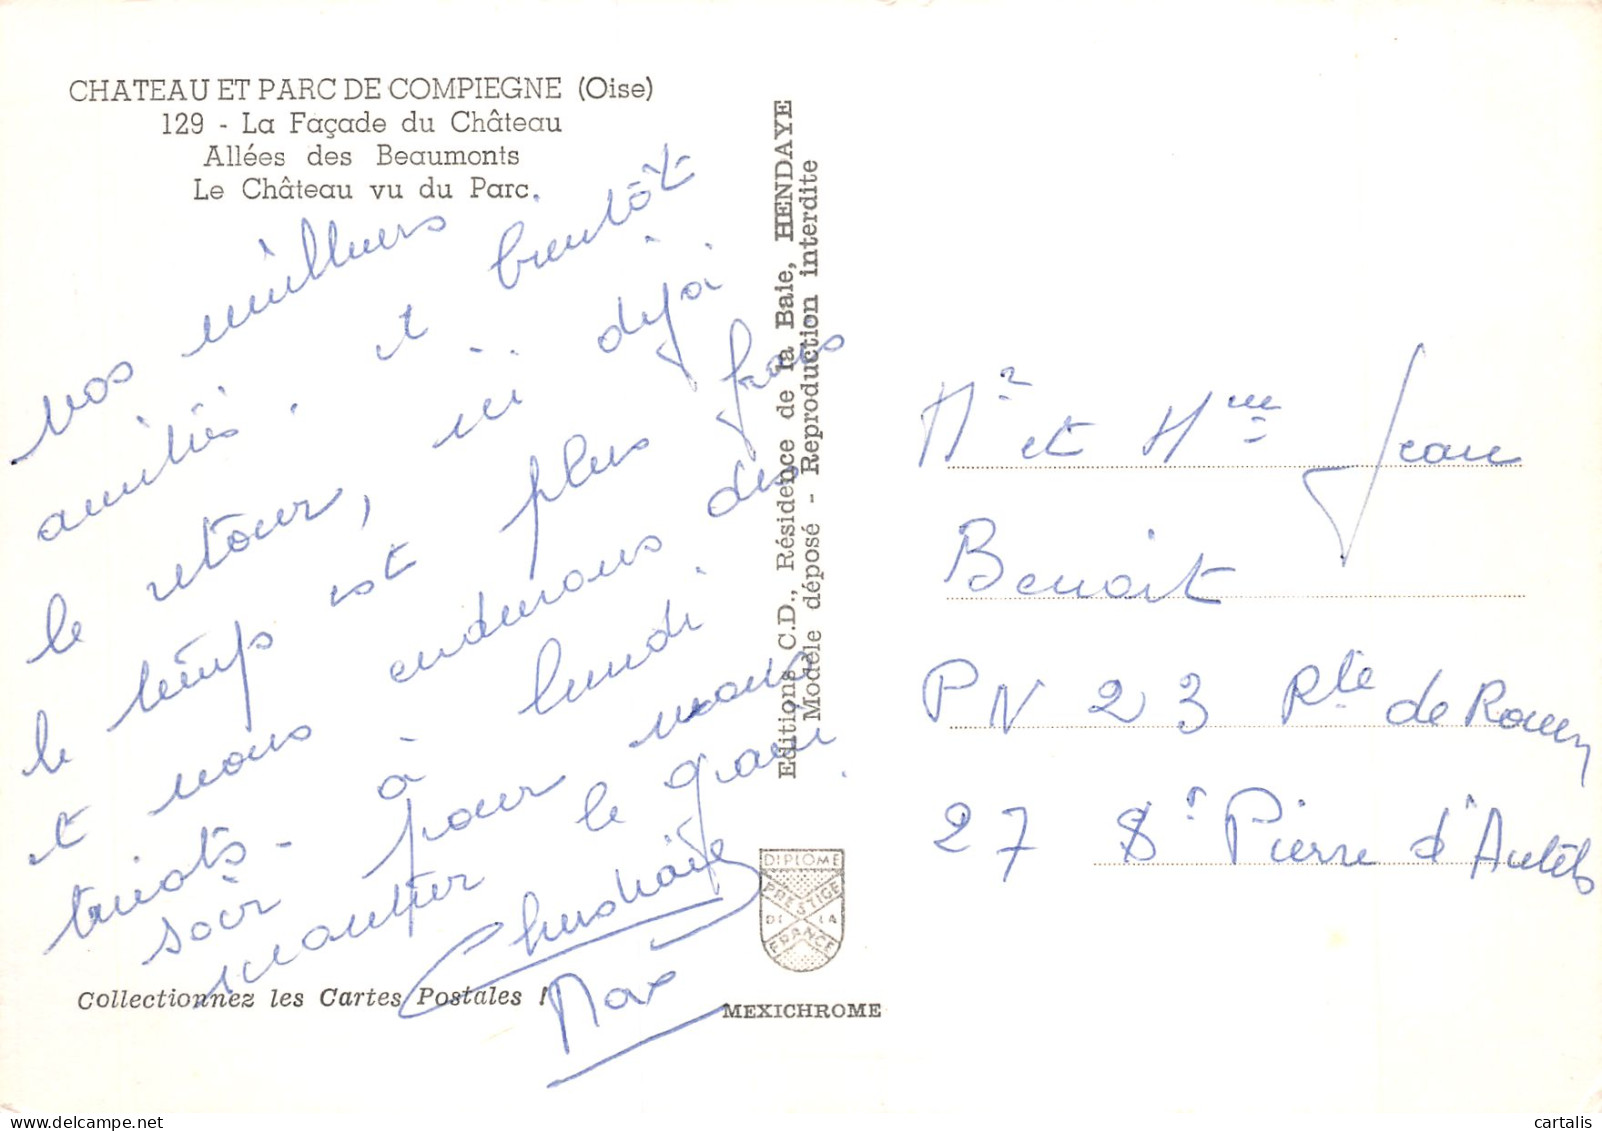 CHATEAU ET PARC DE COMPIEGNE (Oise)
129 - La Façade du Château
Allées des Beaumonts
Le Château vu du Parc.
nos meilleurs
amitiés. et bientôt
le retour, ici déjà
le temps est plus frais
et nous endurons des
tricots - à lundi
soir pour nous
le grain
Christiane
Collectionnez les Cartes Postales !
Editions C.D., Résidence de la Baie, HENDAYE
Modèle déposé - Reproduction interdite
DIPLOME
PRESTIGE
DE LA
FRANCE
MEXICHROME
Mr et Mme Jean
Benoit
PN 23 Rte de Rouen
27 St Pierre d'Autils
cartalis